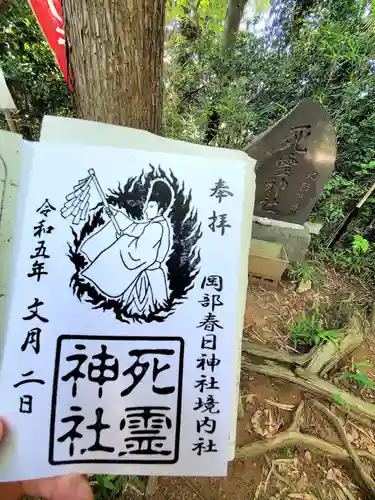 奉拝
岡部春日神社境内社
死霊
神社
令和五年文月二日
死霊神社